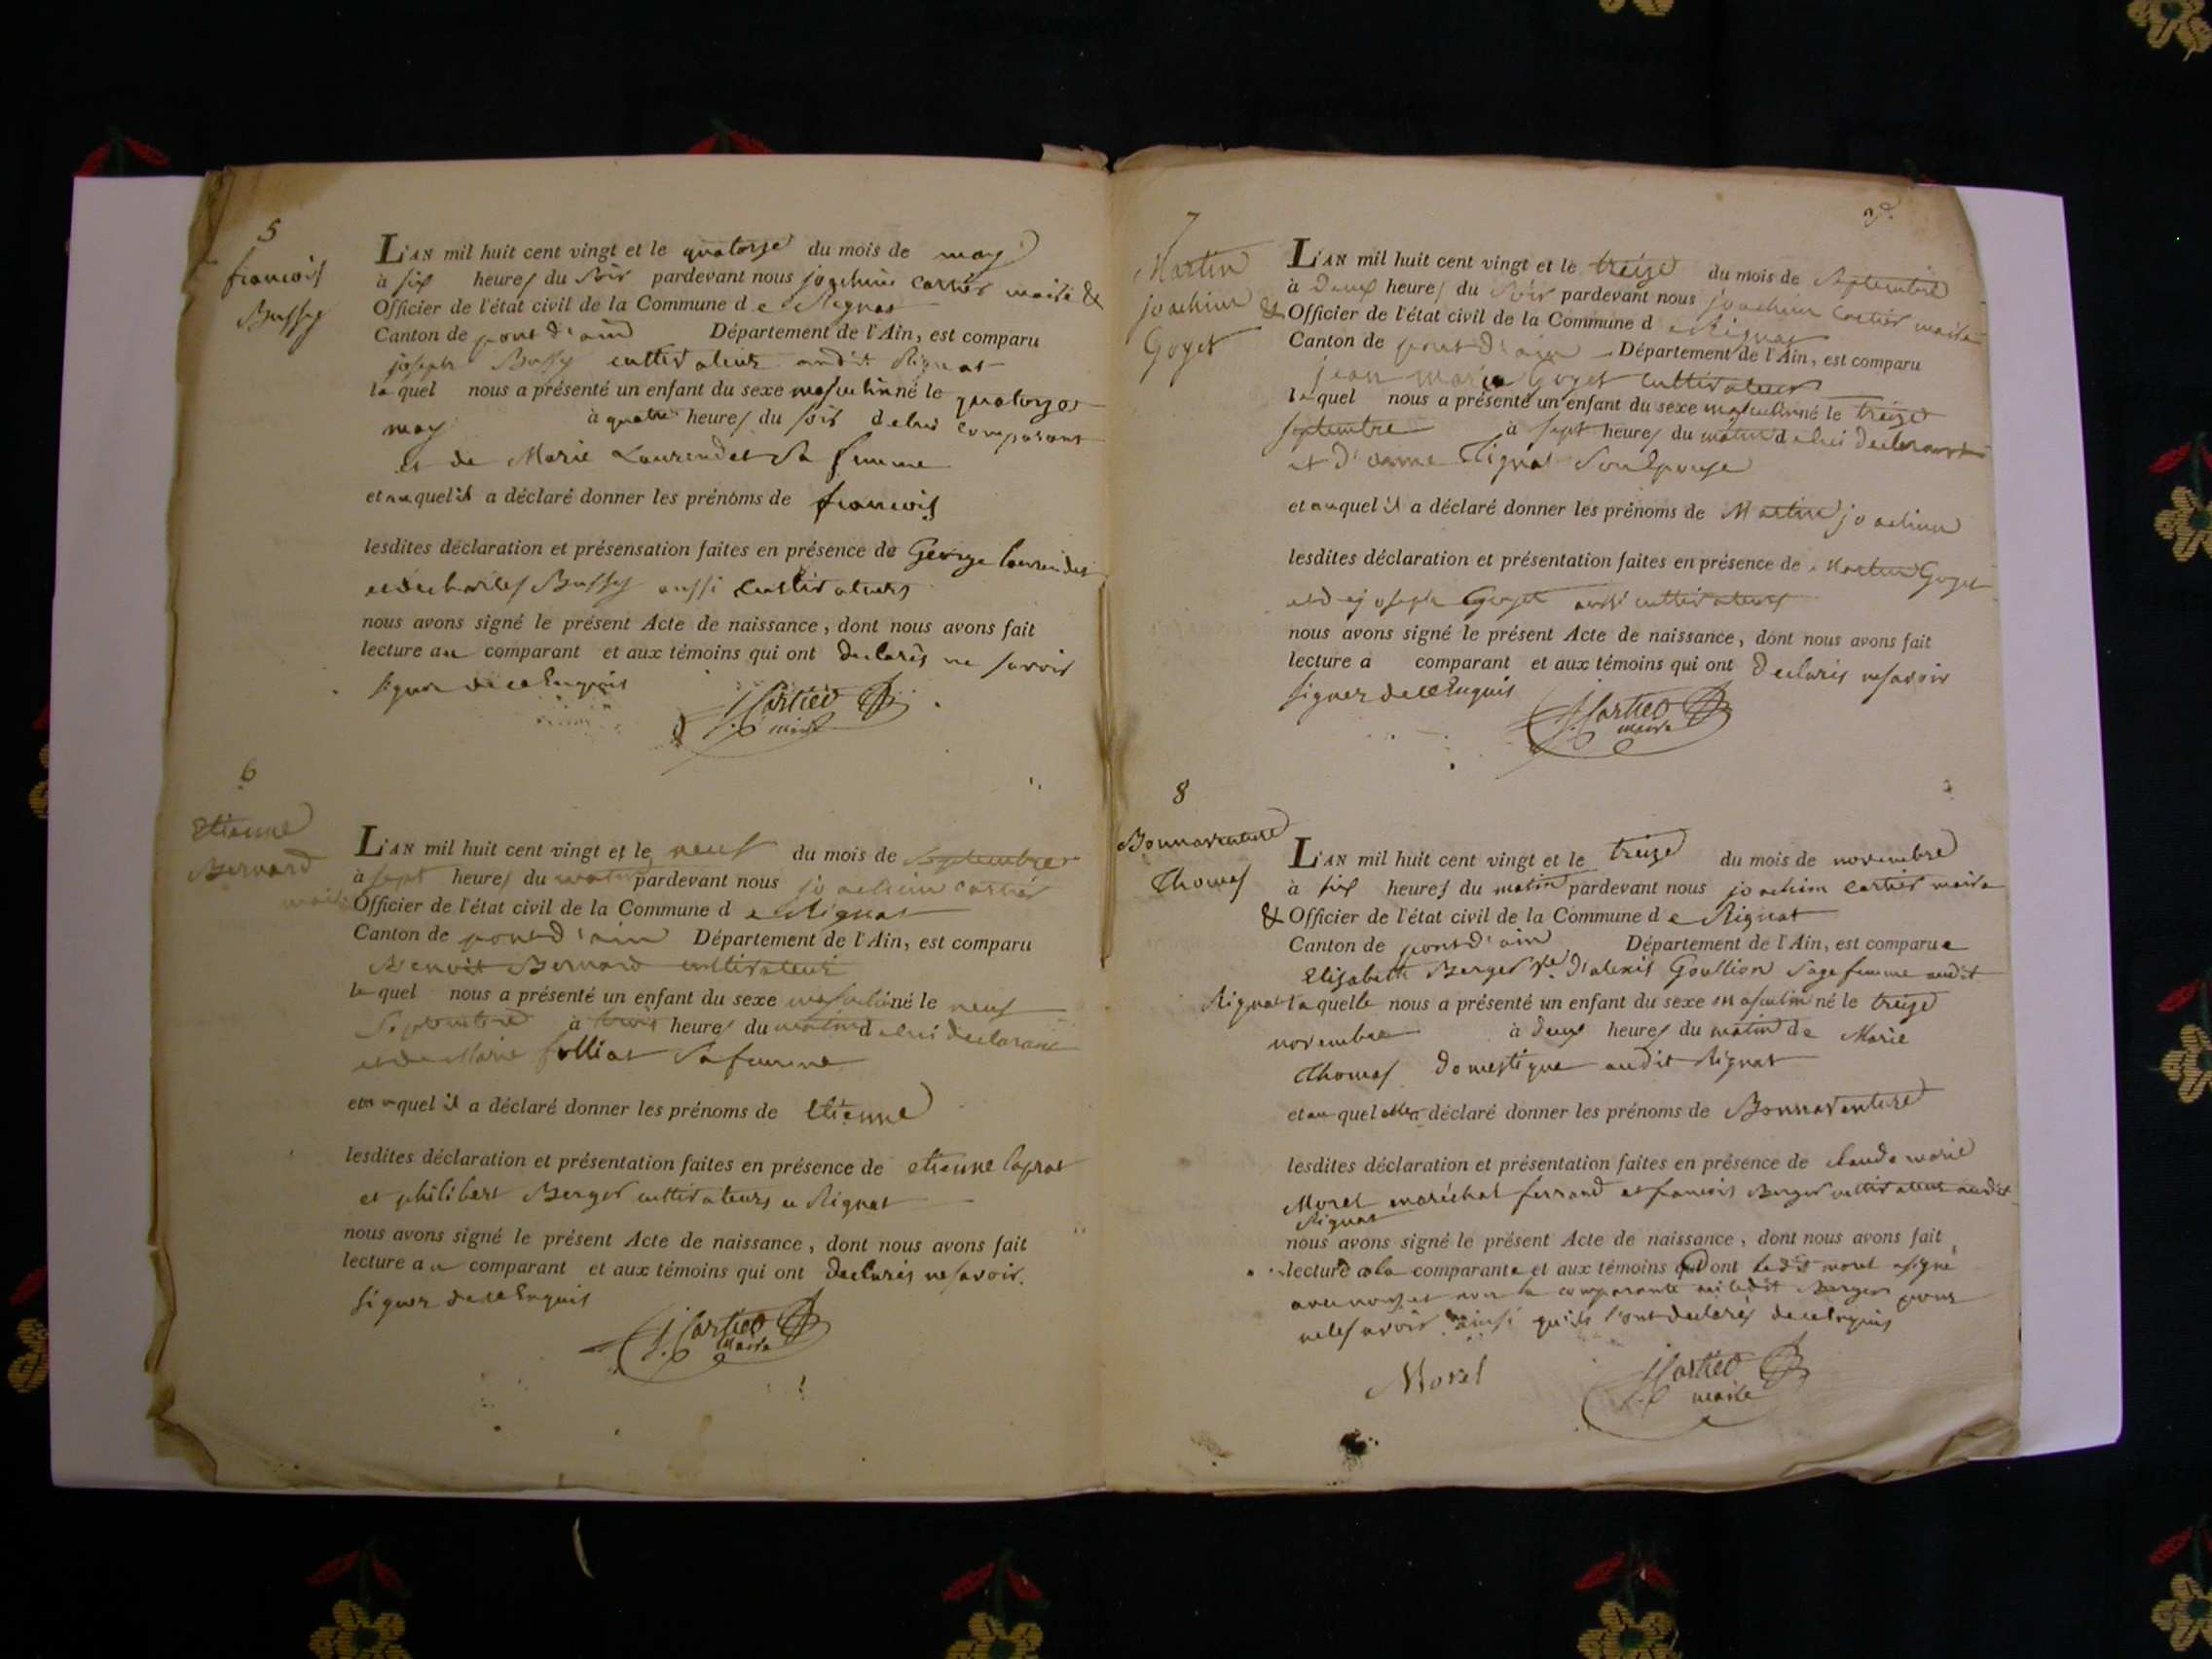 5
francois
Bussy
L'AN mil huit cent vingt et le quatorze du mois de may
à six heures du soir pardevant nous joachim cartier maire &
Officier de l'état civil de la Commune de Rignat
Canton de pont d'ain Département de l'Ain, est comparu
joseph Bussy cultivateur audit Rignat
lequel nous a présenté un enfant du sexe masculin né le quatorze
may à quatre heures du soir de lui comparant
et de Marie Laurendet sa femme
et auquel il a déclaré donner les prénoms de francois
lesdites déclaration et présensation faites en présence de George laurendet
et de charles Bussy aussi cultivateurs
nous avons signé le présent Acte de naissance, dont nous avons fait
lecture au comparant et aux témoins qui ont declarés ne savoir
signer de ce Enquis
J Cartier
maire
6
Etienne
Bernard
L'AN mil huit cent vingt et le neuf du mois de Septembre
à sept heures du matin pardevant nous joachim cartier
maire Officier de l'état civil de la Commune de Rignat
Canton de pont d'ain Département de l'Ain, est comparu
Benoit Bernard cultivateur
lequel nous a présenté un enfant du sexe masculin né le neuf
Septembre à trois heures du matin de lui declarant
et de Marie folliat sa femme
et auquel il a déclaré donner les prénoms de Etienne
lesdites déclaration et présentation faites en présence de etienne
et philibert Berger cultivateurs a Rignat
nous avons signé le présent Acte de naissance, dont nous avons fait
lecture au comparant et aux témoins qui ont declarés ne savoir
signer de ce Enquis
J Cartier
Maire
7
Martin
joachim
Goyet
L'AN mil huit cent vingt et le treize du mois de Septembre
à deux heures du soir pardevant nous joachim cartier maire
& Officier de l'état civil de la Commune de Rignat
Canton de pont d'ain Département de l'Ain, est comparu
jean marie Goyet cultivateur
lequel nous a présenté un enfant du sexe masculin né le treize
septembre à sept heures du matin de lui declarant
et d'anne Rignat son Epouse
et auquel il a déclaré donner les prénoms de Martin joachim
lesdites déclaration et présentation faites en présence de Martin Goyet
et de joseph Goyet aussi cultivateurs
nous avons signé le présent Acte de naissance, dont nous avons fait
lecture a comparant et aux témoins qui ont declarés ne savoir
signer de ce Enquis
J Cartier
maire
8
Bonnaventure
Thomas
L'AN mil huit cent vingt et le treize du mois de novembre
à six heures du matin pardevant nous joachim cartier maire
& Officier de l'état civil de la Commune de Rignat
Canton de pont d'ain Département de l'Ain, est comparue
Elisabeth Berger ve. d'alexis Goullion sage femme audit
Rignat laquelle nous a présenté un enfant du sexe masculin né le treize
novembre à deux heures du matin de Marie
Thomas Domestique audit Rignat
et auquel elle a déclaré donner les prénoms de Bonnaventure
lesdites déclaration et présentation faites en présence de claude marie
Morel maréchal ferrand et francois Berger cultivateur audit
Rignat
nous avons signé le présent Acte de naissance, dont nous avons fait
lecture a la comparante et aux témoins qui ont ledit morel a signé
avec nous et non la comparante ni ledit Berger pour
ne le savoir ainsi qu'ils l'ont declarés de ce Enquis
Morel
J Cartier
maire